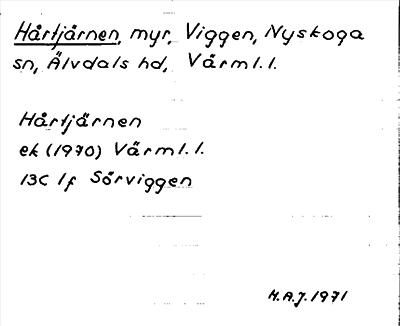 Hårtjärnen, myr, Viggen, Nyskoga
sn, Älvdals hd, Värml. l.
Hårtjärnen
ek (1970) Värml. l.
13C 1f Sörviggen
H.A.J. 1971